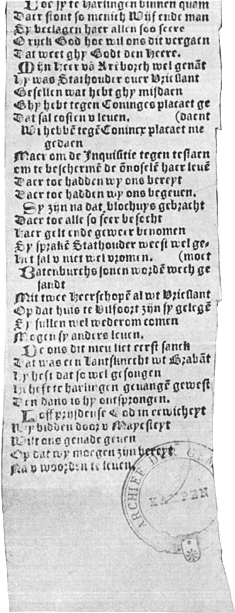 Doe sy te Harlingen binnen quam
Daer stont so menich Wijf ende man
Sy beclagen haer allen soo seere
O rijck God hoe wil ons dit vergaen
Dat weet ghy Godt den Heere.
Mijn Heer vā Ariborch wel genāt
Hy was Stathouder over Vrieslant
Gesellen wat hebt ghy misdaen
Ghy hebt tegen Coninges placaet ge
Dat sal costen u leuen. (daent
Wi hebbē tegē Conincx placaet nie
gedaen
Maer om de Inquisitie tegen te staen
om te beschermē de ōnoselē haer leuē
Daer toe hadden wy ons bereyt
Daer toe hadden wy ons begeuen.
Sy zijn na dat blochuys gebracht
Daer toe alle so seer besocht
Haer gelt ende geweer benomen
Sy sprakē Stathouder weest wel ge-
Het sal v niet wel vromen. (moet
Batenburchs sonen wordē wech ge
sandt
Mit twee Heerschopē al wt Vrieslant
Op dat huis te Vilfoort zijn sy gelegē
Sy sullen wel wederom comen
Mogen sy anders leuen.
De ons dit nieu liet eerst sanck
Dat was een Lantsknecht wt Brabāt
Hy heft dat so wel gesongen
Hi heft te harlingen geuangē gewest
Den dans is hy ontsprongen.
Loff prijs deuse God in eewicheyt
Wy bidden door v Mayesteyt
Wilt ons genade geuen
Op dat wy moegen zijn bereyt
Na v woorden te leuen.
ARCHIEF DER GE
KAMPEN